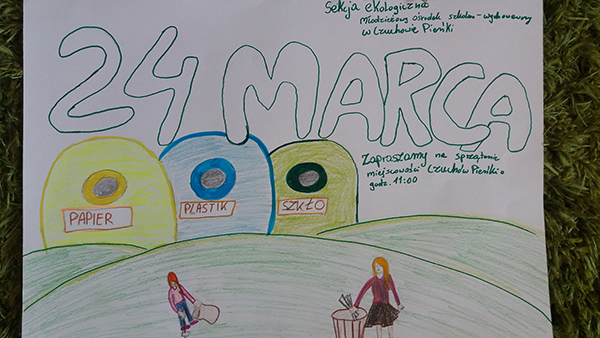 Sekcja ekologiczna
Młodzieżowy ośrodek szkolno-wychowawczy
w Czuchowie Pieńki
24 MARCA
Zapraszamy na sprzątanie
miejscowości Czuchów Pieńki o
godz. 11:00
PAPIER
PLASTIK
SZKŁO